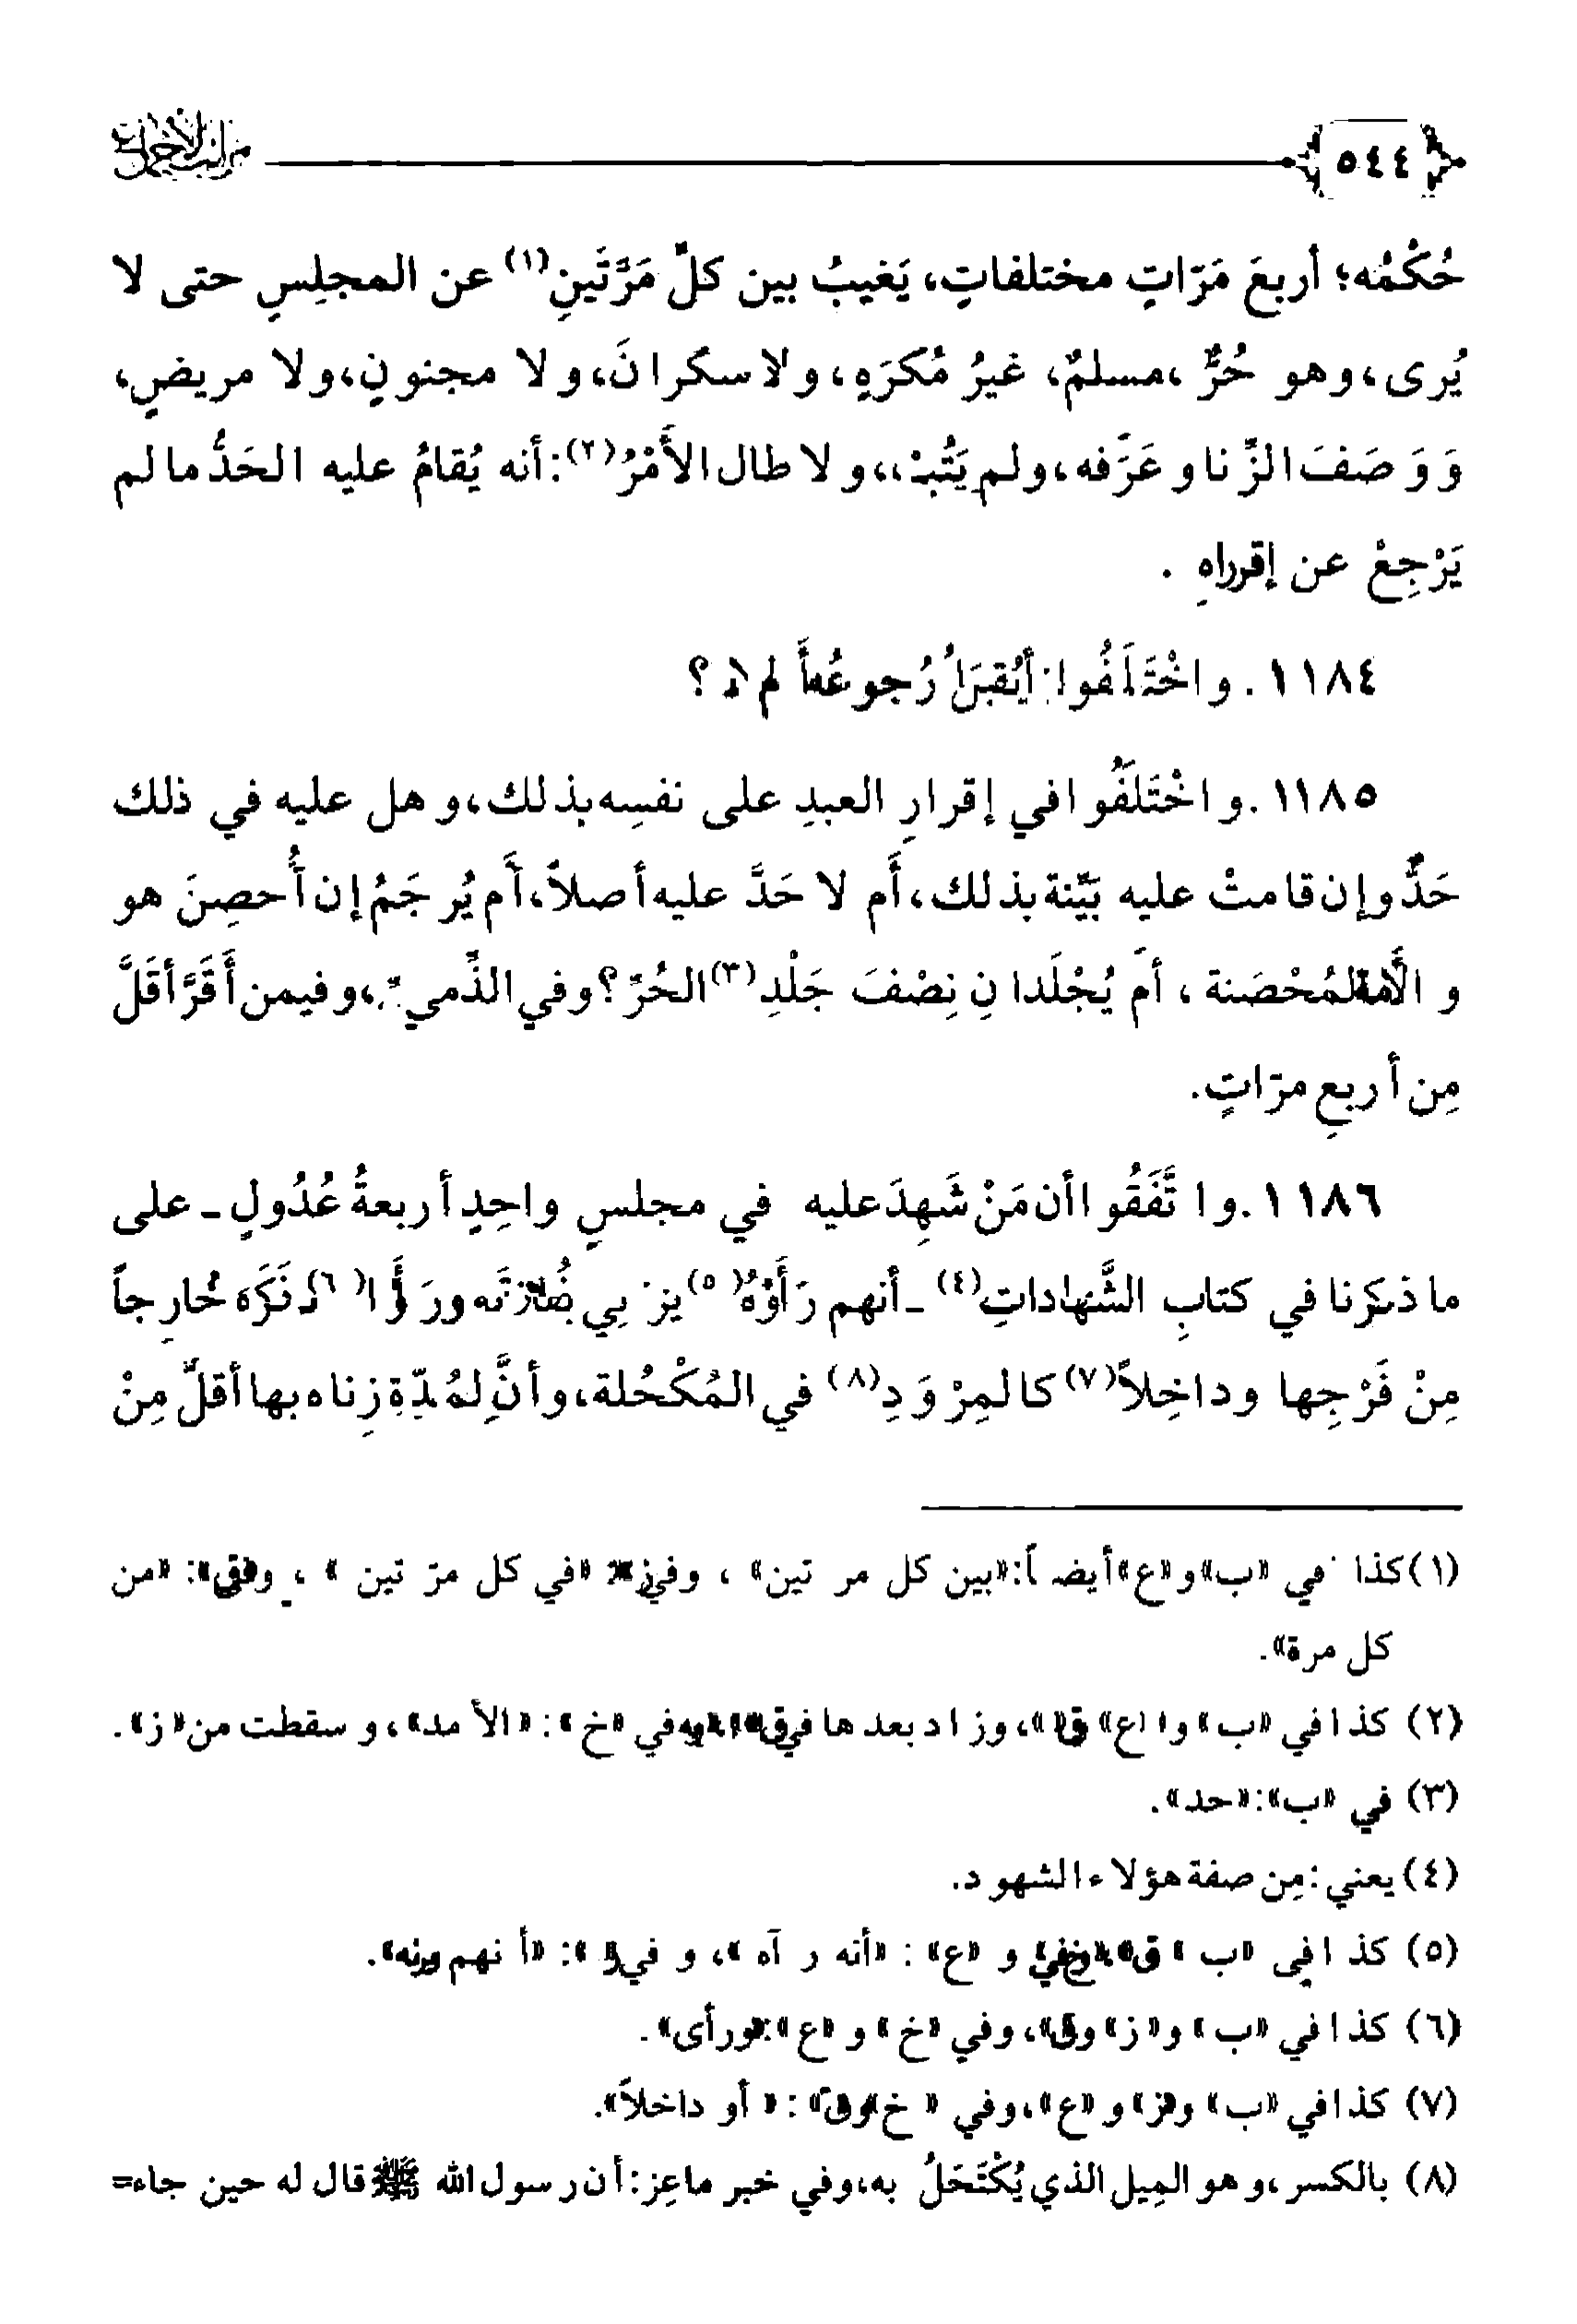 ٥٤٤ مراتب الإجماع
حُكْمُه؛ أربعَ مَرّاتٍ مختلفاتٍ، يَغيبُ بين كلِّ مَرَّتَينِ(١) عن المجلِسِ حتى لا
يُرى، وهو حُرٌّ، مسلمٌ، غيرُ مُكرَهٍ، ولا سكرانَ، ولا مجنونٍ، ولا مريضٍ،
وَوَصَفَ الزِّنا وعَرَّفه، ولم يَتُبْ، ولا طال الأَمْرُ(٢): أنه يُقامُ عليه الحَدُّ ما لم
يَرْجِعْ عن إقراره.
١١٨٤. واخْتَلَفُوا: أَيُقبَلُ رُجوعُه أَم لا؟
١١٨٥. واخْتَلَفُوا في إقرارِ العبدِ على نفسِه بذلك، وهل عليه في ذلك
حَدٌّ وإن قامتْ عليه بَيِّنة بذلك، أَم لا حَدَّ عليه أصلاً، أَم يُرجَمُ إن أُحصِنَ هو
والأَمة المُحْصَنة، أَم يُجْلَدانِ نِصْفَ جَلْدِ(٣) الحُرِّ؟ وفي الذِّميِّ، وفيمن أَقَرَّ أقَلَّ
مِن أربعِ مرّاتٍ.
١١٨٦. واتَّفَقُوا أن مَنْ شَهِدَ عليه في مجلسٍ واحِدٍ أربعةُ عُدُولٍ ـ على
ما ذكرنا في كتابِ الشَّهاداتِ(٤) ـ أنهم رَأَوْهُ(٥) يزني ورَأَوْا(٦) ذَكَرَه خارِجاً
مِنْ فَرْجِها وداخِلاً(٧) كالمِرْوَدِ(٨) في المُكْحُلة، وأنَّ لِمُدّةِ زِناه بها أقلَّ مِنْ
(١) كذا في «ب» و«ع» أيضاً: «بين كل مرتين»، وفي «ز» «في كل مرّتين»، و«ق»: «من
كل مرة».
(٢) كذا في «ب» و«ع» و«ق»، وزاد بعدها في «ق» وفي «خ»: «الأمد»، وسقطت من «ز».
(٣) في «ب»: «حد».
(٤) يعني: مِن صفة هؤلاء الشهود.
(٥) كذا في «ب» و«ق»، وفي «خ» و«ع»: «أنه رآه»، وفي «ز»: «أنهم يرونه».
(٦) كذا في «ب» و«ز» و«ق»، وفي «خ» و«ع»: «ورأى».
(٧) كذا في «ب» و«ز» و«ع»، وفي «خ» و«ق»: «أو داخلاً».
(٨) بالكسر، وهو المِيل الذي يُكْتَحَلُ به، وفي خبر ماعِز: أن رسول الله ﷺ قال له حين جاء=